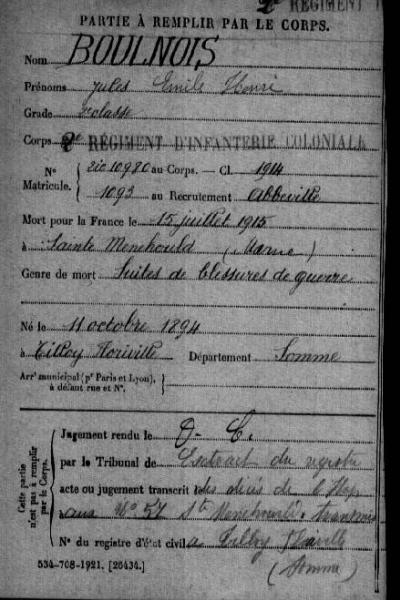 2e RÉGIMENT
PARTIE À REMPLIR PAR LE CORPS.
Nom BOULNOIS
Prénoms Jules Emile Henri
Grade 2e classe
Corps 2e RÉGIMENT D'INFANTERIE COLONIALE
N° 2ic 10980 au Corps. — Cl. 1914
Matricule. 1093 au Recrutement Abbeville
Mort pour la France le 15 juillet 1915
à Sainte Menehould (Marne)
Genre de mort Suites de blessures de guerre
Né le 11 octobre 1894
à Tilloy Floriville Département Somme
Arrt municipal (pr Paris et Lyon),
à défaut rue et N°.
Cette partie
n'est pas à remplir
par le Corps.
Jugement rendu le D. C.
par le Tribunal de Extrait du registre
acte ou jugement transcrit le des décès de l'Hop
aux N° 57 Ste Menehould transmis
N° du registre d'état civil à Tilloy Floriville
(Somme)
534-708-1921. [26434.]